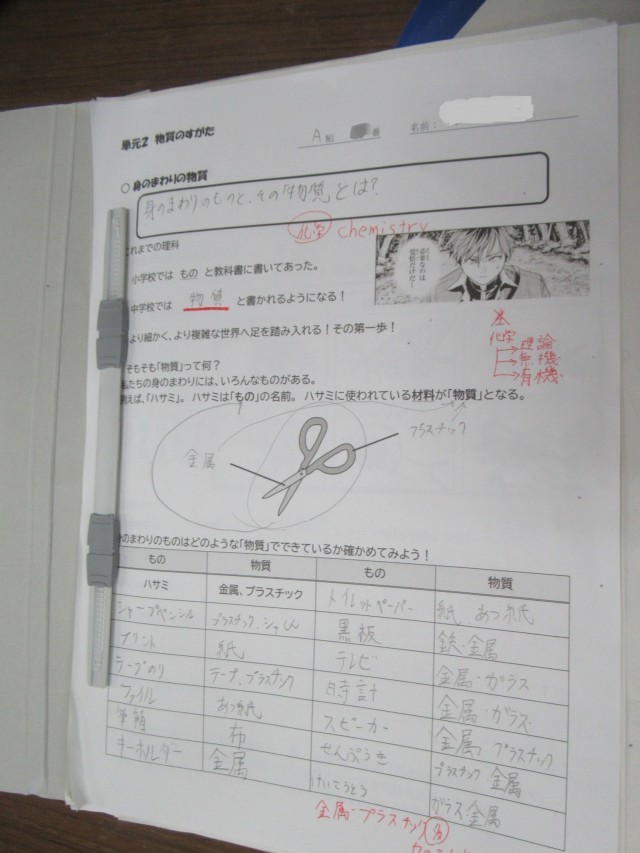 単元2 物質のすがた
A組 番 名前：
○ 身のまわりの物質
身のまわりのものと、その「物質」とは？
化学 chemistry
これまでの理科
小学校では もの と教科書に書いてあった。
中学校では 物質 と書かれるようになる！
より細かく、より複雑な世界へ足を踏み入れる！その第一歩！
必要なのは
覚悟だけだ！
化学
理論
無機
有機
そもそも「物質」って何？
私たちの身のまわりには、いろんなものがある。
例えば、「ハサミ」。 ハサミは「もの」の名前。 ハサミに使われている材料が「物質」となる。
金属
プラスチック
身のまわりのものはどのような「物質」でできているか確かめてみよう！
もの 物質 もの 物質
ハサミ 金属、プラスチック トイレットペーパー 紙 あつ紙
シャープペンシル プラスチック、シャしん 黒板 鉄・金属
プリント 紙 テレビ 金属・ガラス
テープのり テープ、プラスチック 時計 金属・ガラス
ファイル あつ紙 スピーカー 金属 プラスチック
筆箱 布 せんぷうき プラスチック 金属
キーホルダー 金属 けいこうとう ガラス・金属
金属・プラスチック